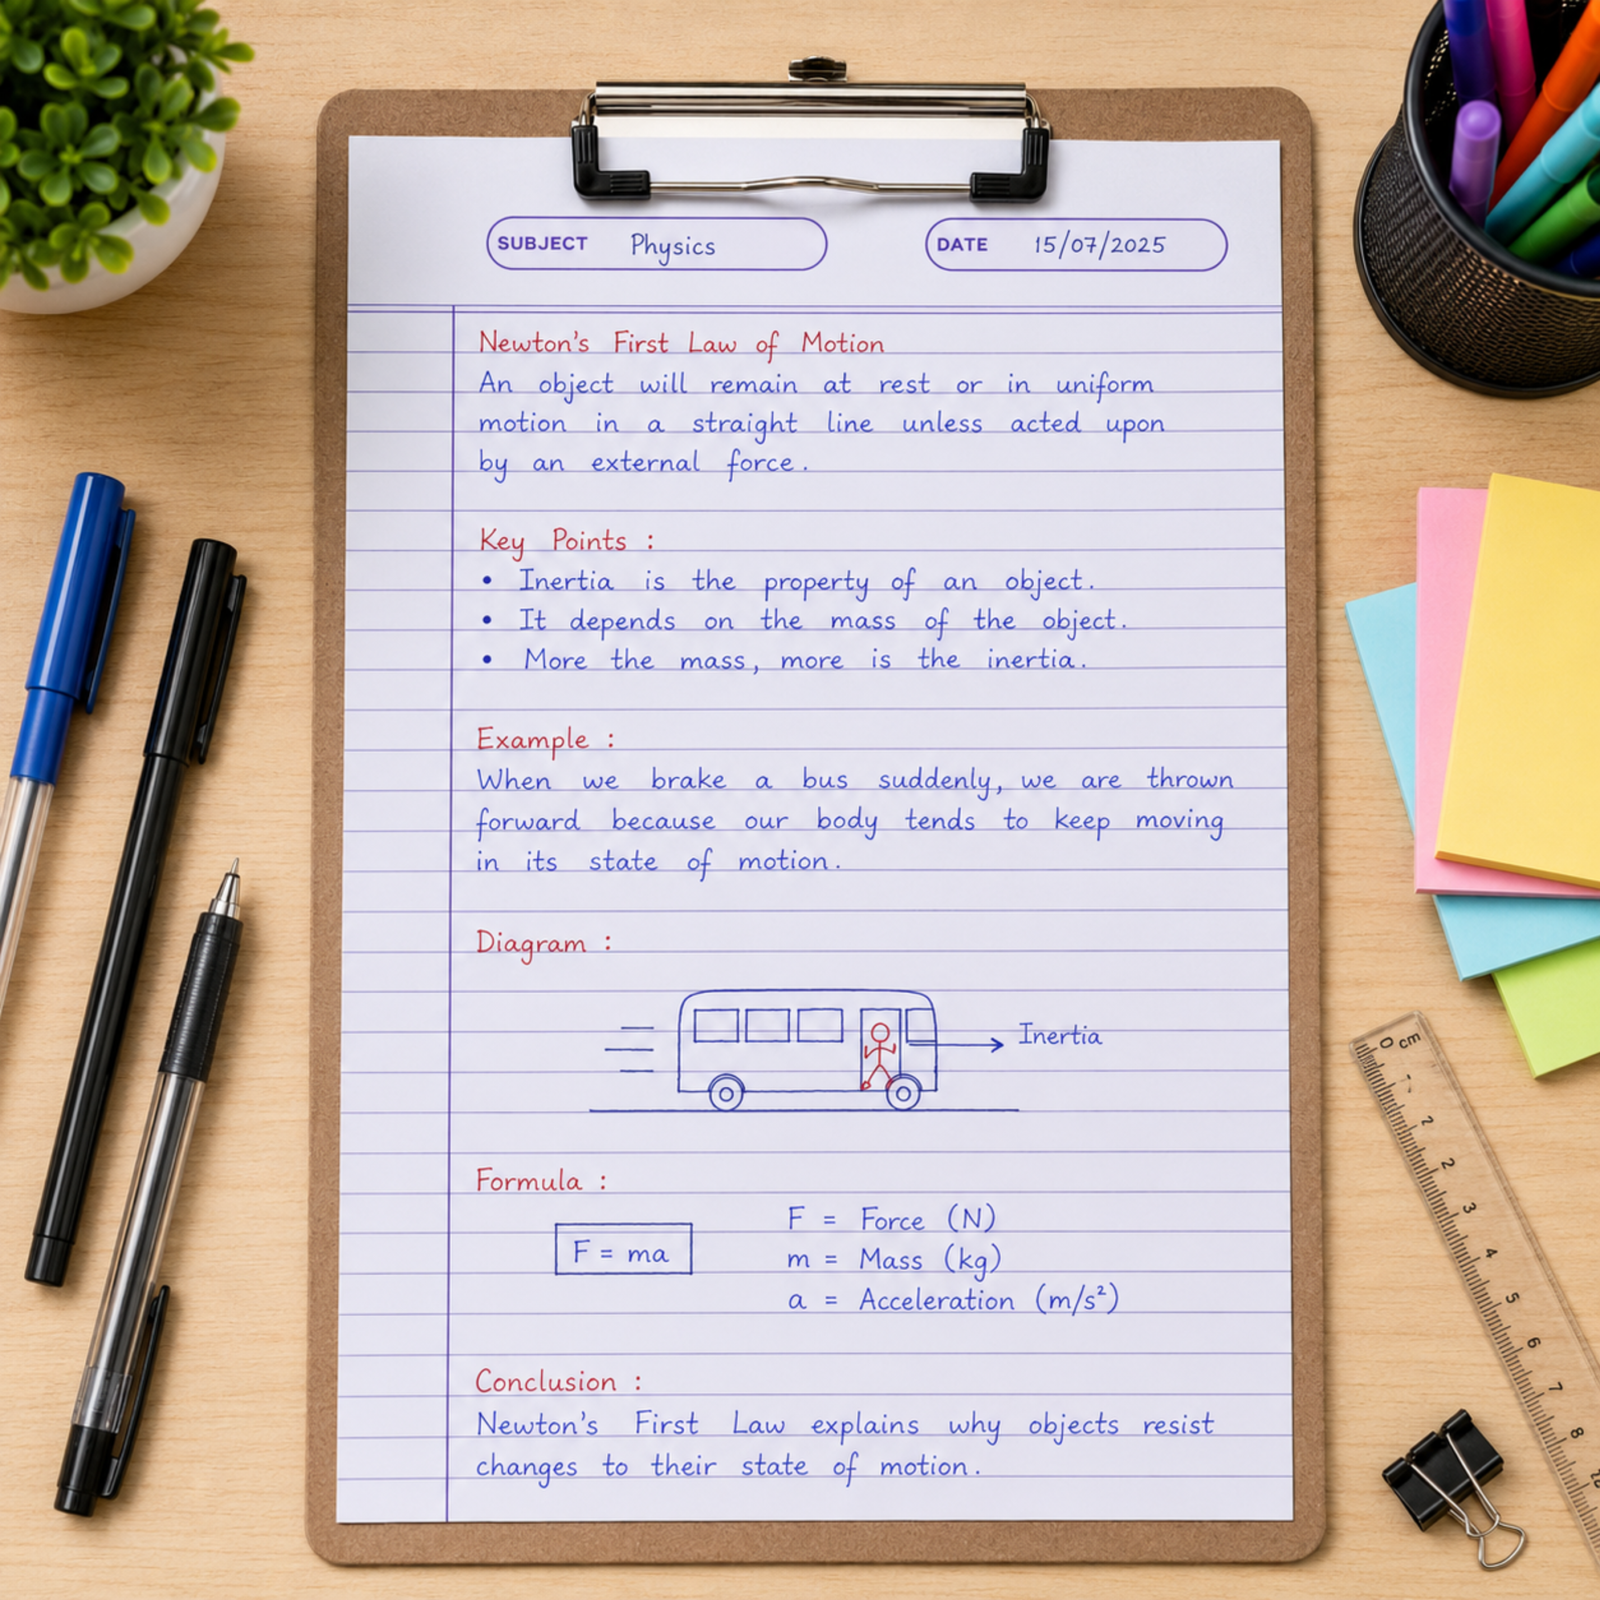 SUBJECT Physics
DATE 15/07/2025
Newton's First Law of Motion
An object will remain at rest or in uniform
motion in a straight line unless acted upon
by an external force.
Key Points :
• Inertia is the property of an object.
• It depends on the mass of the object.
• More the mass, more is the inertia.
Example :
When we brake a bus suddenly, we are thrown
forward because our body tends to keep moving
in its state of motion.
Diagram :
Inertia
Formula :
F = ma
F = Force (N)
m = Mass (kg)
a = Acceleration (m/s²)
Conclusion :
Newton's First Law explains why objects resist
changes to their state of motion.
0 CM
2
2
3
4
5
6
7
8